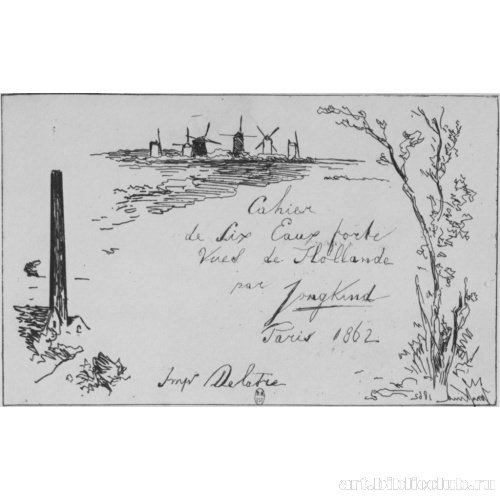 Cahier
de Six Eaux forte
Vues de Hollande
par Jongkind
Paris 1862
Imp. Delatre
1862
art.biblioclub.ru